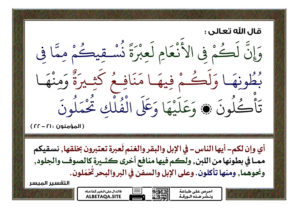 قال الله تعالى :
وَإِنَّ لَكُمْ فِي الْأَنْعَامِ لَعِبْرَةً نُسْقِيكُمْ مِمَّا فِي
بُطُونِهَا وَلَكُمْ فِيهَا مَنَافِعُ كَثِيرَةٌ وَمِنْهَا
تَأْكُلُونَ ۞ وَعَلَيْهَا وَعَلَى الْفُلْكِ تُحْمَلُونَ
(المؤمنون : ٢١ - ٢٢)
أي وإن لكم - أيها الناس - في الإبل والبقر والغنم لَعبرة تعتبرون بخلقها, نسقيكم
مما في بطونها من اللبن, ولكم فيها منافع أخرى كثيرة كالصوف والجلود,
ونحوهما, ومنها تأكلون. وعلى الإبل والسفن في البر والبحر تُحملون.
التفسير الميسر
احرص على طباعة
ونشر هذه الورقة
ALBETAQA.SITE